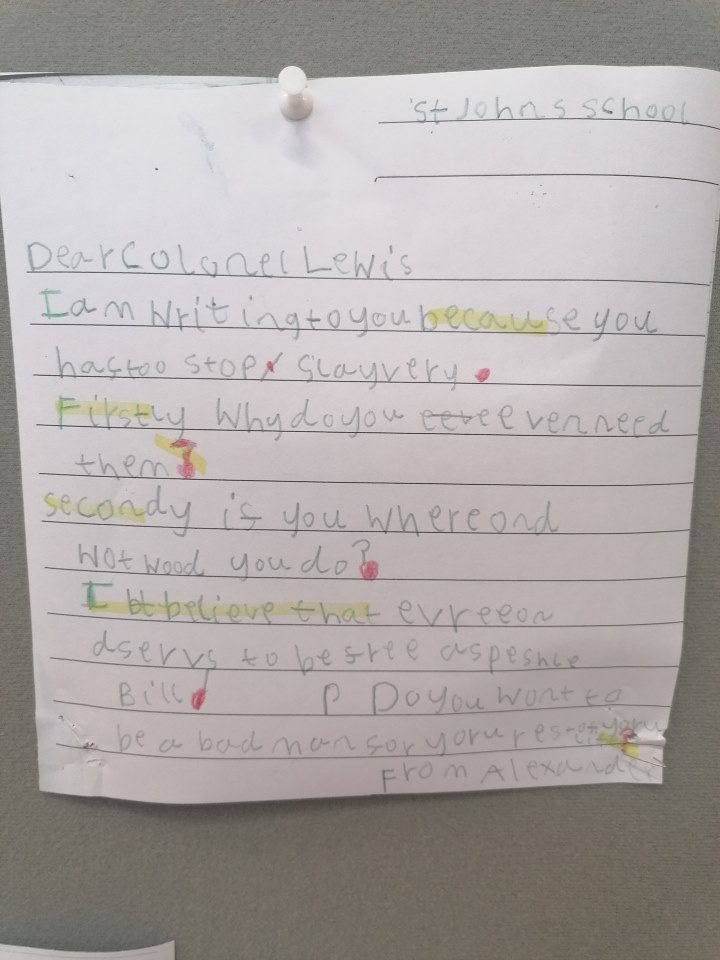 St Johns School
Dear Colonel Lewis
I am writing to you because you
has too stop slayvery.
Firstly Why do you eeve even need
them?
secondy if you where ond
wot wood you do?
I bt believe that evreeon
dservs to be free aspeshle
Bill! P Do you wont to
be a bad man for yoru rest of yoru
From Alexander